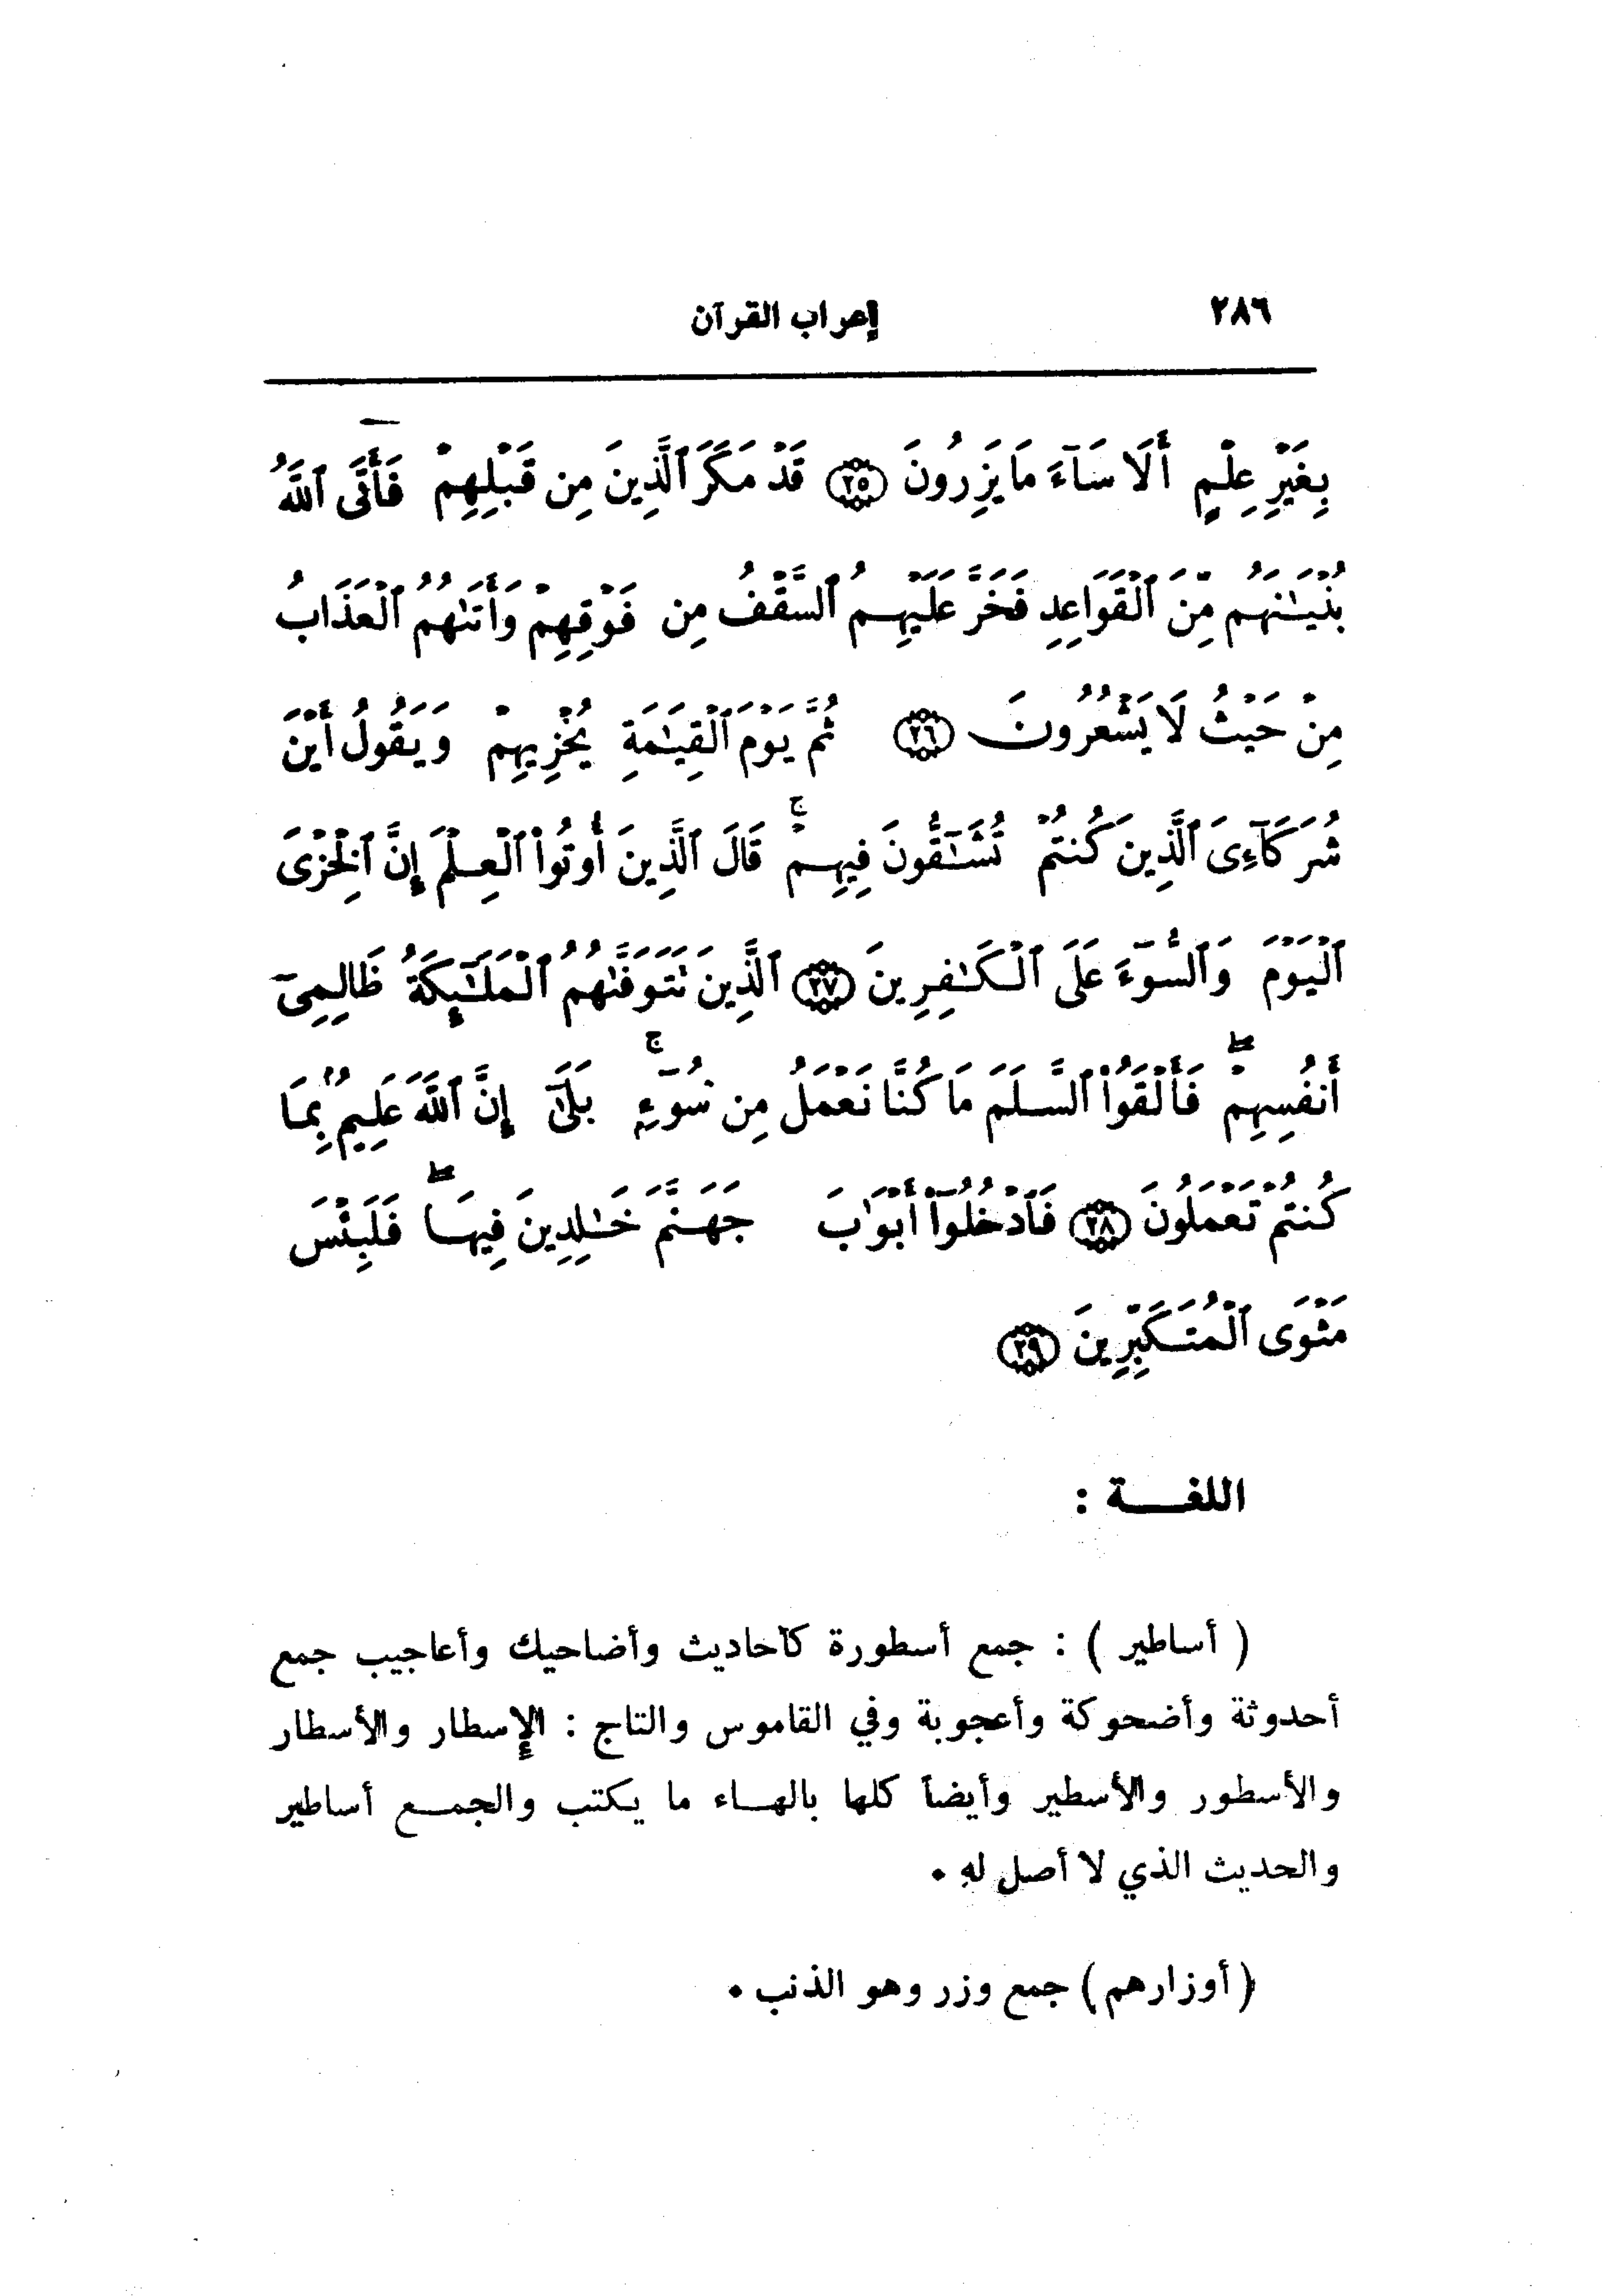 ٢٨٦ إعراب القرآن
بِغَيْرِ عِلْمٍ أَلَا سَآءَ مَا يَزِرُونَ ﴿٢٥﴾ قَدْ مَكَرَ ٱلَّذِينَ مِن قَبْلِهِمْ فَأَتَى ٱللَّهُ
بُنْيَـٰنَهُم مِّنَ ٱلْقَوَاعِدِ فَخَرَّ عَلَيْهِمُ ٱلسَّقْفُ مِن فَوْقِهِمْ وَأَتَىٰهُمُ ٱلْعَذَابُ
مِنْ حَيْثُ لَا يَشْعُرُونَ ﴿٢٦﴾ ثُمَّ يَوْمَ ٱلْقِيَـٰمَةِ يُخْزِيهِمْ وَيَقُولُ أَيْنَ
شُرَكَآءِىَ ٱلَّذِينَ كُنتُمْ تُشَـٰٓقُّونَ فِيهِمْ ۚ قَالَ ٱلَّذِينَ أُوتُوا۟ ٱلْعِلْمَ إِنَّ ٱلْخِزْىَ
ٱلْيَوْمَ وَٱلسُّوٓءَ عَلَى ٱلْكَـٰفِرِينَ ﴿٢٧﴾ ٱلَّذِينَ تَتَوَفَّىٰهُمُ ٱلْمَلَـٰٓئِكَةُ ظَالِمِىٓ
أَنفُسِهِمْ ۖ فَأَلْقَوُا۟ ٱلسَّلَمَ مَا كُنَّا نَعْمَلُ مِن سُوٓءٍۭ ۚ بَلَىٰٓ إِنَّ ٱللَّهَ عَلِيمٌۢ بِمَا
كُنتُمْ تَعْمَلُونَ ﴿٢٨﴾ فَٱدْخُلُوٓا۟ أَبْوَٰبَ جَهَنَّمَ خَـٰلِدِينَ فِيهَا ۖ فَلَبِئْسَ
مَثْوَى ٱلْمُتَكَبِّرِينَ ﴿٢٩﴾
اللغـــة :
( أساطير ) : جمع أسطورة كأحاديث وأضاحيك وأعاجيب جمع
أحدوثة وأضحوكة وأعجوبة وفي القاموس والتاج : الإسطار والأسطار
والأسطور والأسطير وأيضاً كلها بالهاء ما يكتب والجمع أساطير
والحديث الذي لا أصل له .
( أوزارهم ) جمع وزر وهو الذنب .